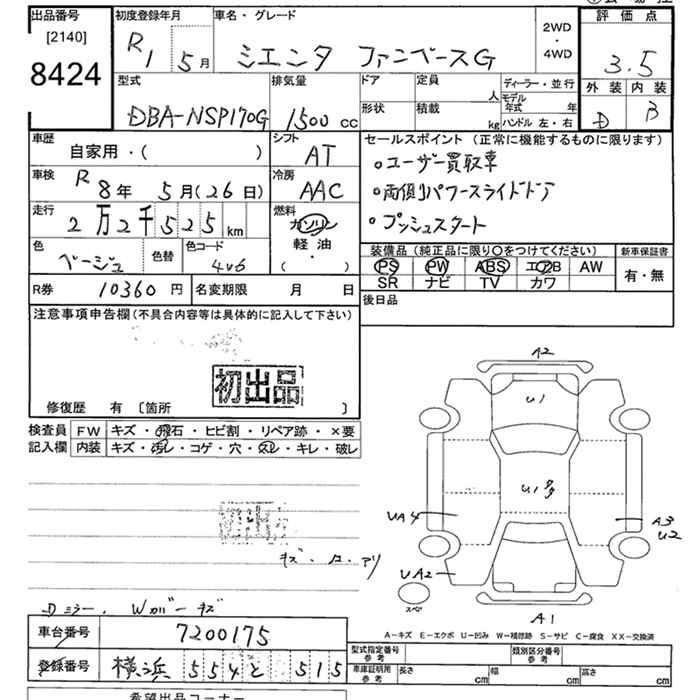 出品番号 初度登録年月 車名・グレード 2WD・4WD 評価点
[2140]
8424
R1 5月 シエンタ ファンベースG 3.5
型式 排気量 ドア 定員 人 ディーラー・並行 外装 内装
DBA-NSP170G 1500 cc 形状 積載 kg モデル年式 年 D B
ハンドル 左・右
車歴 自家用・( ) シフト AT セールスポイント (正常に機能するものに限ります)
車検 R8年 5月(26日) 冷房 AAC ○ユーザー買取車
○両側パワースライドドア
走行 2万2千525km 燃料 ガソリン 軽油 ・ ( ) ○プッシュスタート
色 ベージュ 色替 色コード 4V6 装備品 (純正品に限り○をつけてください) 新車保証書
PS PW ABS エアB AW 有・無
SR ナビ TV カワ
R券 10360円 名変期限 月 日 後日品
注意事項申告欄 (不具合内容等は具体的に記入して下さい)
初出品
修復歴 有 〔箇所 〕
検査員記入欄 FW キズ・飛石・ヒビ割・リペア跡・×要
内装 キズ・汚レ・コゲ・穴・スレ・キレ・破レ
A2
U1
U1多
UA4
A3
U2
UA2
スペア
A1
初出
キズ・コ・アリ
Dミラー、Wカバーキズ
A-キズ E-エクボ U-凹み W-補修跡 S-サビ C-腐食 XX-交換済
車台番号 7200175
型式指定番号 参考 類別区分番号 参考
登録番号 横浜 554 と 515
車庫証明用 参考 長さ cm 幅 cm 高さ cm
希望出品コーナー